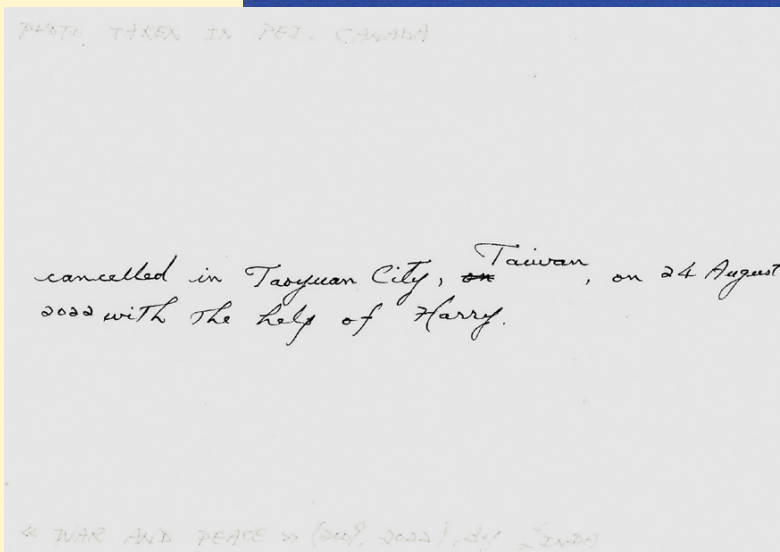 PHOTO TAKEN IN PEI. CANADA
cancelled in Taoyuan City, on Taiwan, on 24 August
2022 with the help of Harry.
« WAR AND PEACE » (2009, 2022), by